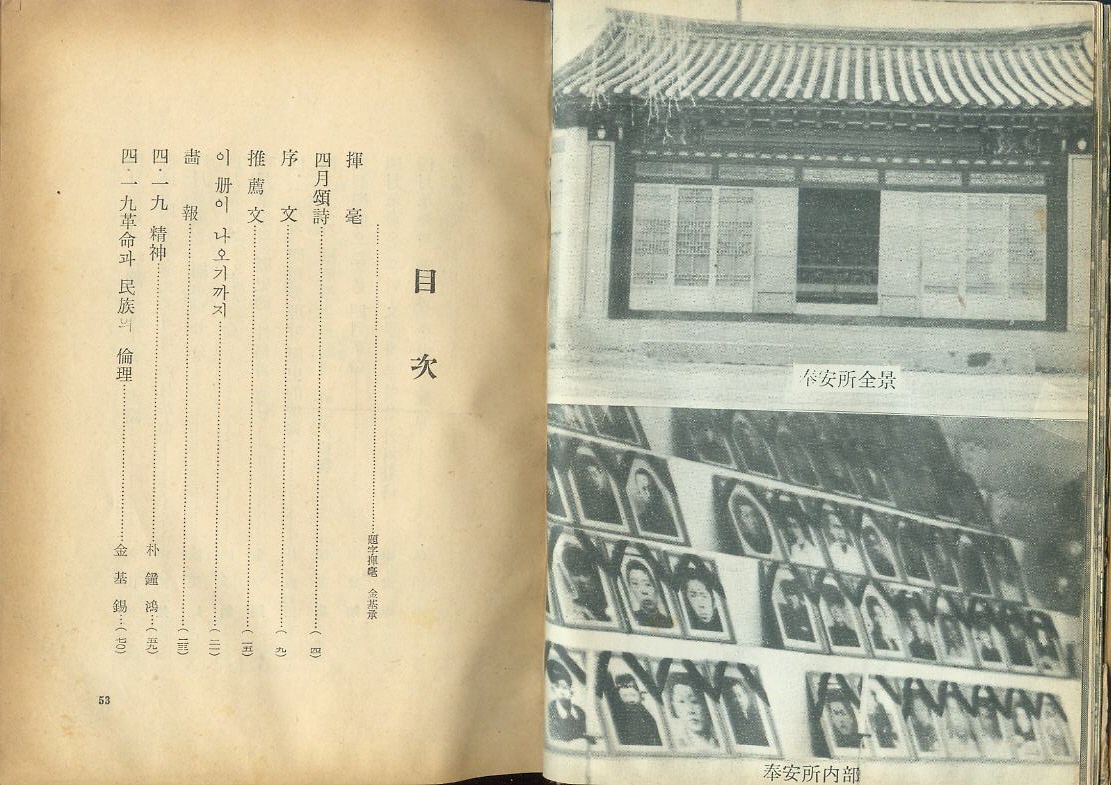 奉安所全景
奉安所內部
目次
揮毫……題字揮毫 金基承
四月頌詩……(四)
序文……(九)
推薦文……(一五)
이 册이 나오기까지……(二一)
畵報……(二三)
四·一九 精神……朴鐘鴻…(五九)
四·一九革命과 民族의 倫理……金基錫…(七〇)
53